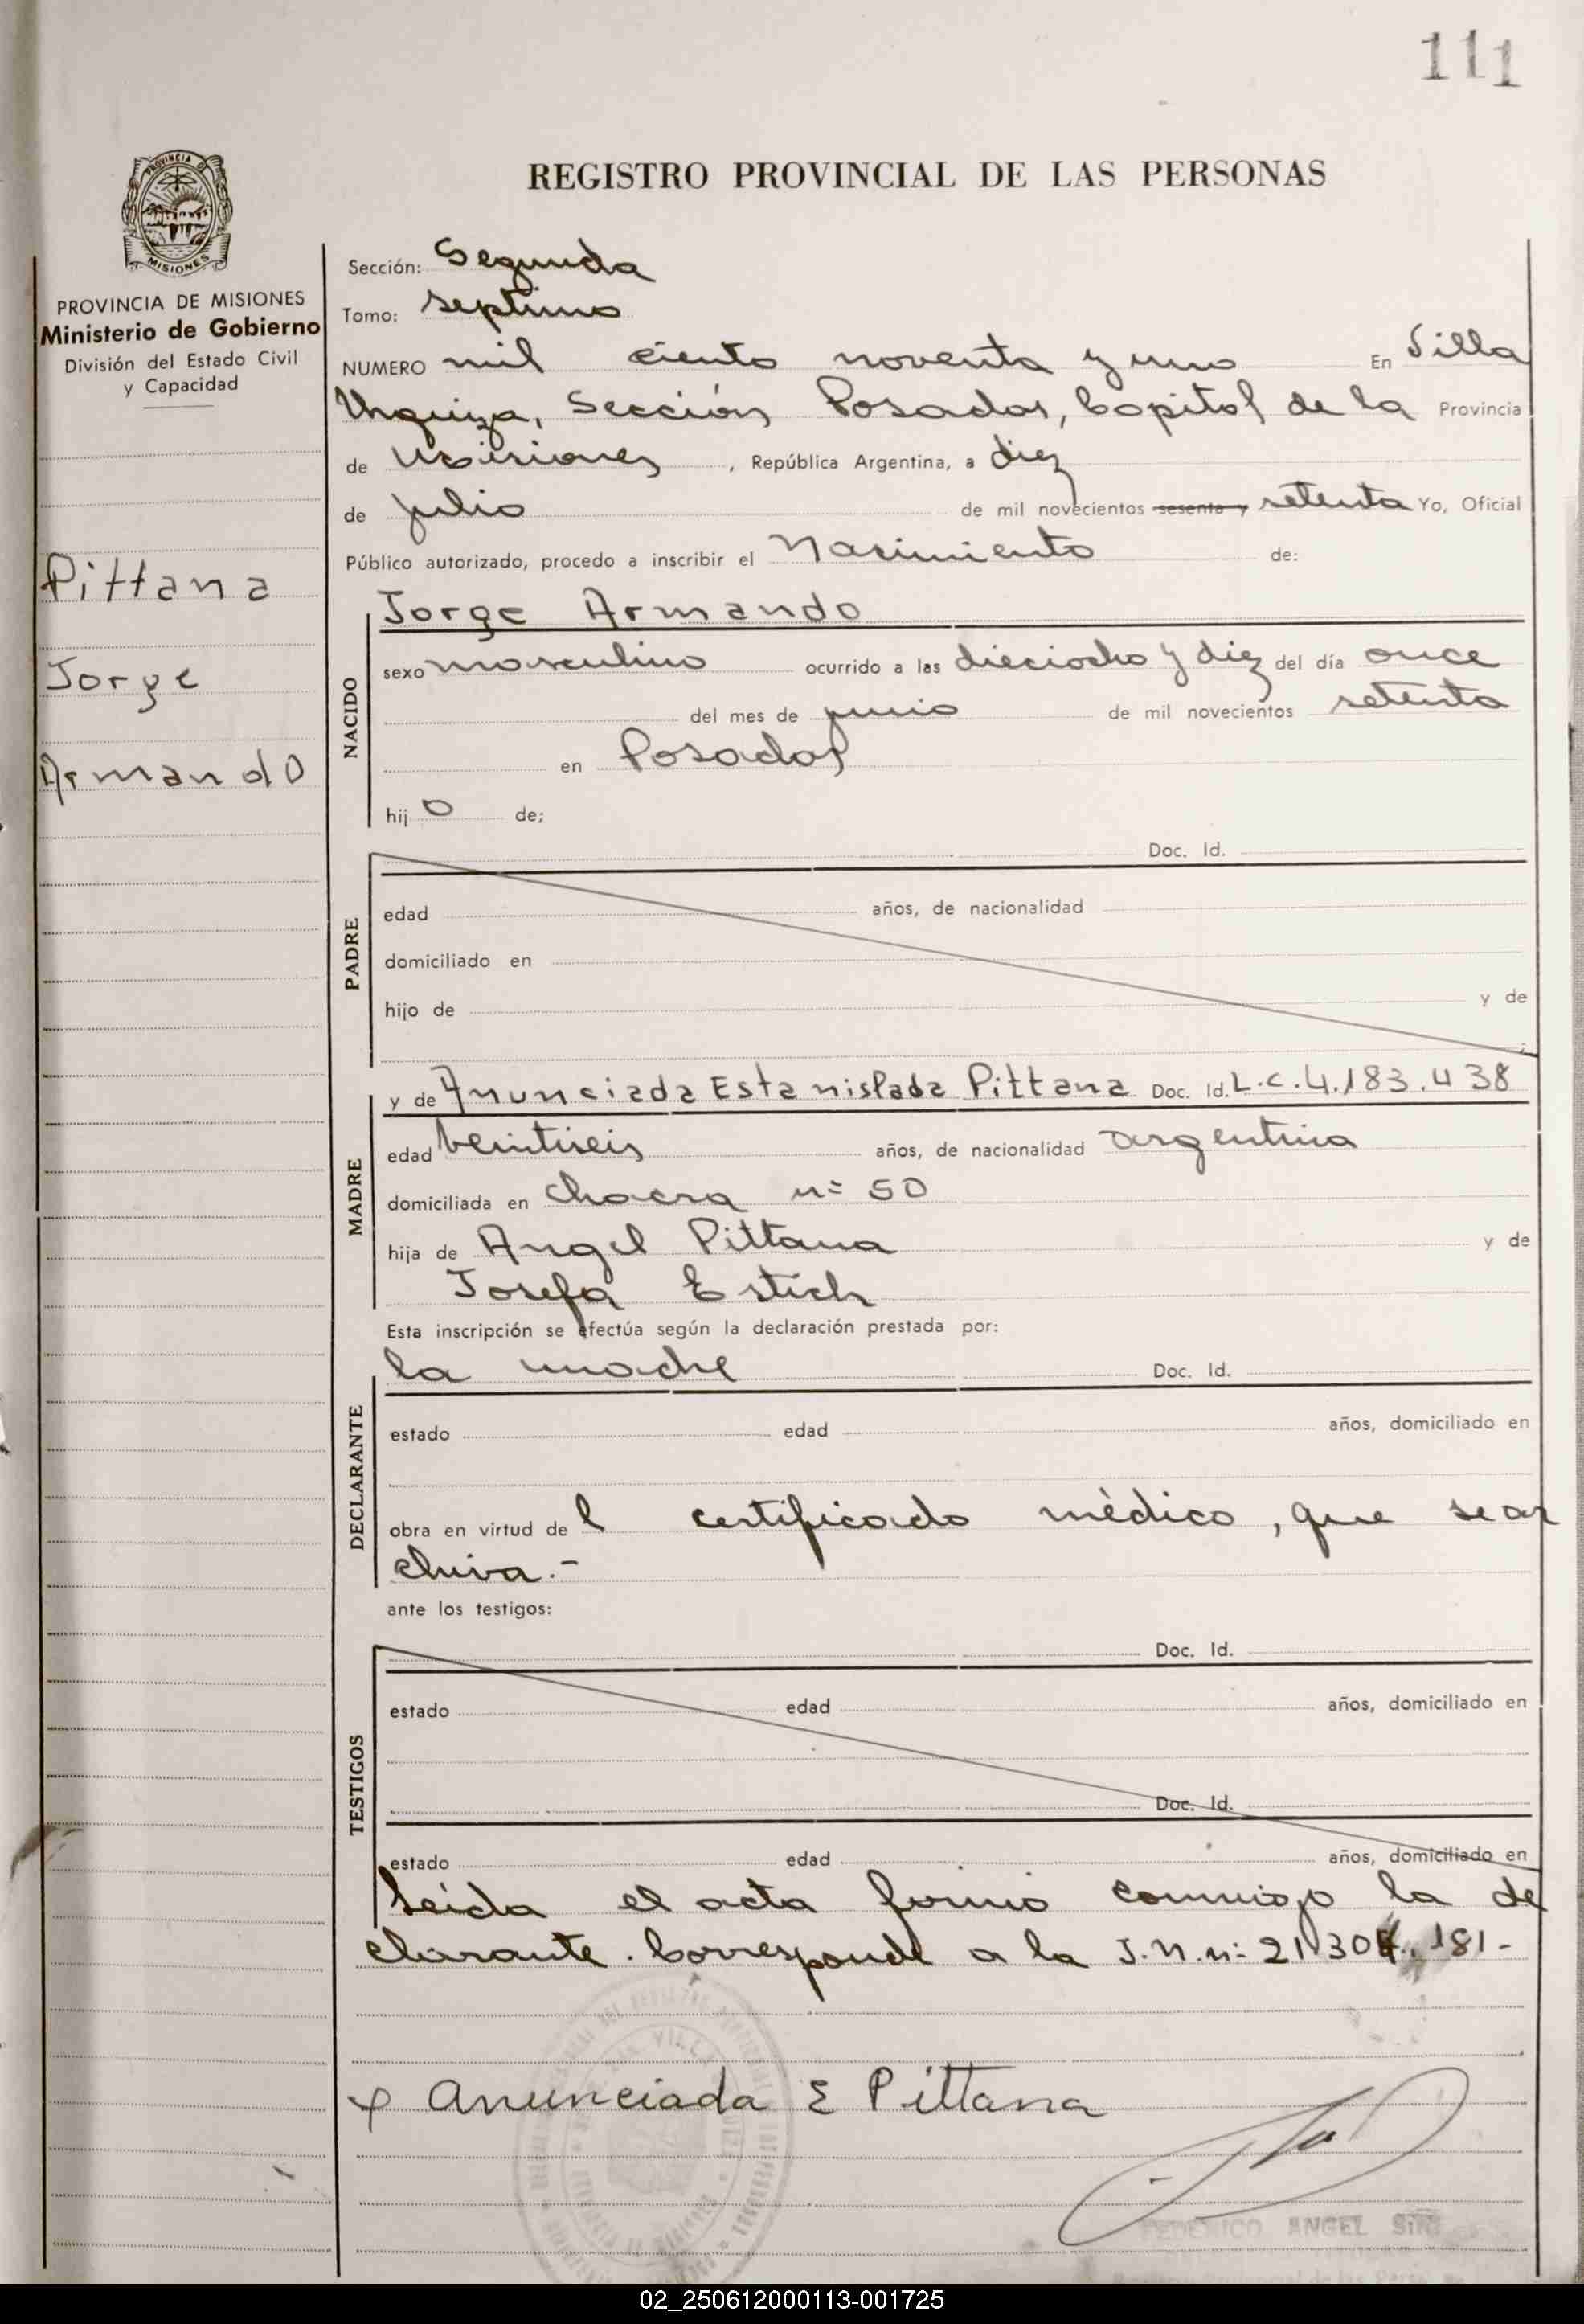 111
REGISTRO PROVINCIAL DE LAS PERSONAS
PROVINCIA DE
MISIONES
PROVINCIA DE MISIONES
Ministerio de Gobierno
División del Estado Civil
y Capacidad
Pittana
Jorge
Armando
Sección: Segunda
Tomo: septimo
NUMERO mil ciento noventa y uno En Villa
Urquiza, Sección Posadas, Capital de la Provincia
de Misiones, República Argentina, a diez
de julio de mil novecientos sesenta y setenta Yo, Oficial
Público autorizado, procedo a inscribir el Nacimiento de:
NACIDO
Jorge Armando
sexo masculino ocurrido a las dieciocho y diez del día once
del mes de junio de mil novecientos setenta
en Posadas
hij o de;
PADRE
Doc. Id.
edad años, de nacionalidad
domiciliado en
hijo de y de
MADRE
y de Anunciada Estanislada Pittana Doc. Id. L.C. 4.183.438
edad veintiseis años, de nacionalidad argentina
domiciliada en chacra n= 50
hija de Angel Pittana y de
Josefa Estich
Esta inscripción se efectúa según la declaración prestada por:
DECLARANTE
la madre Doc. Id.
estado edad años, domiciliado en
obra en virtud de l certificado médico, que se ar
chiva.-
ante los testigos:
TESTIGOS
Doc. Id.
estado edad años, domiciliado en
Doc. Id.
estado edad años, domiciliado en
Leída el acta firmó conmigo la de
clarante. Corresponde a la I.N. n= 181-
Anunciada E Pittana
FEDERICO ANGEL
02_250612000113-001725